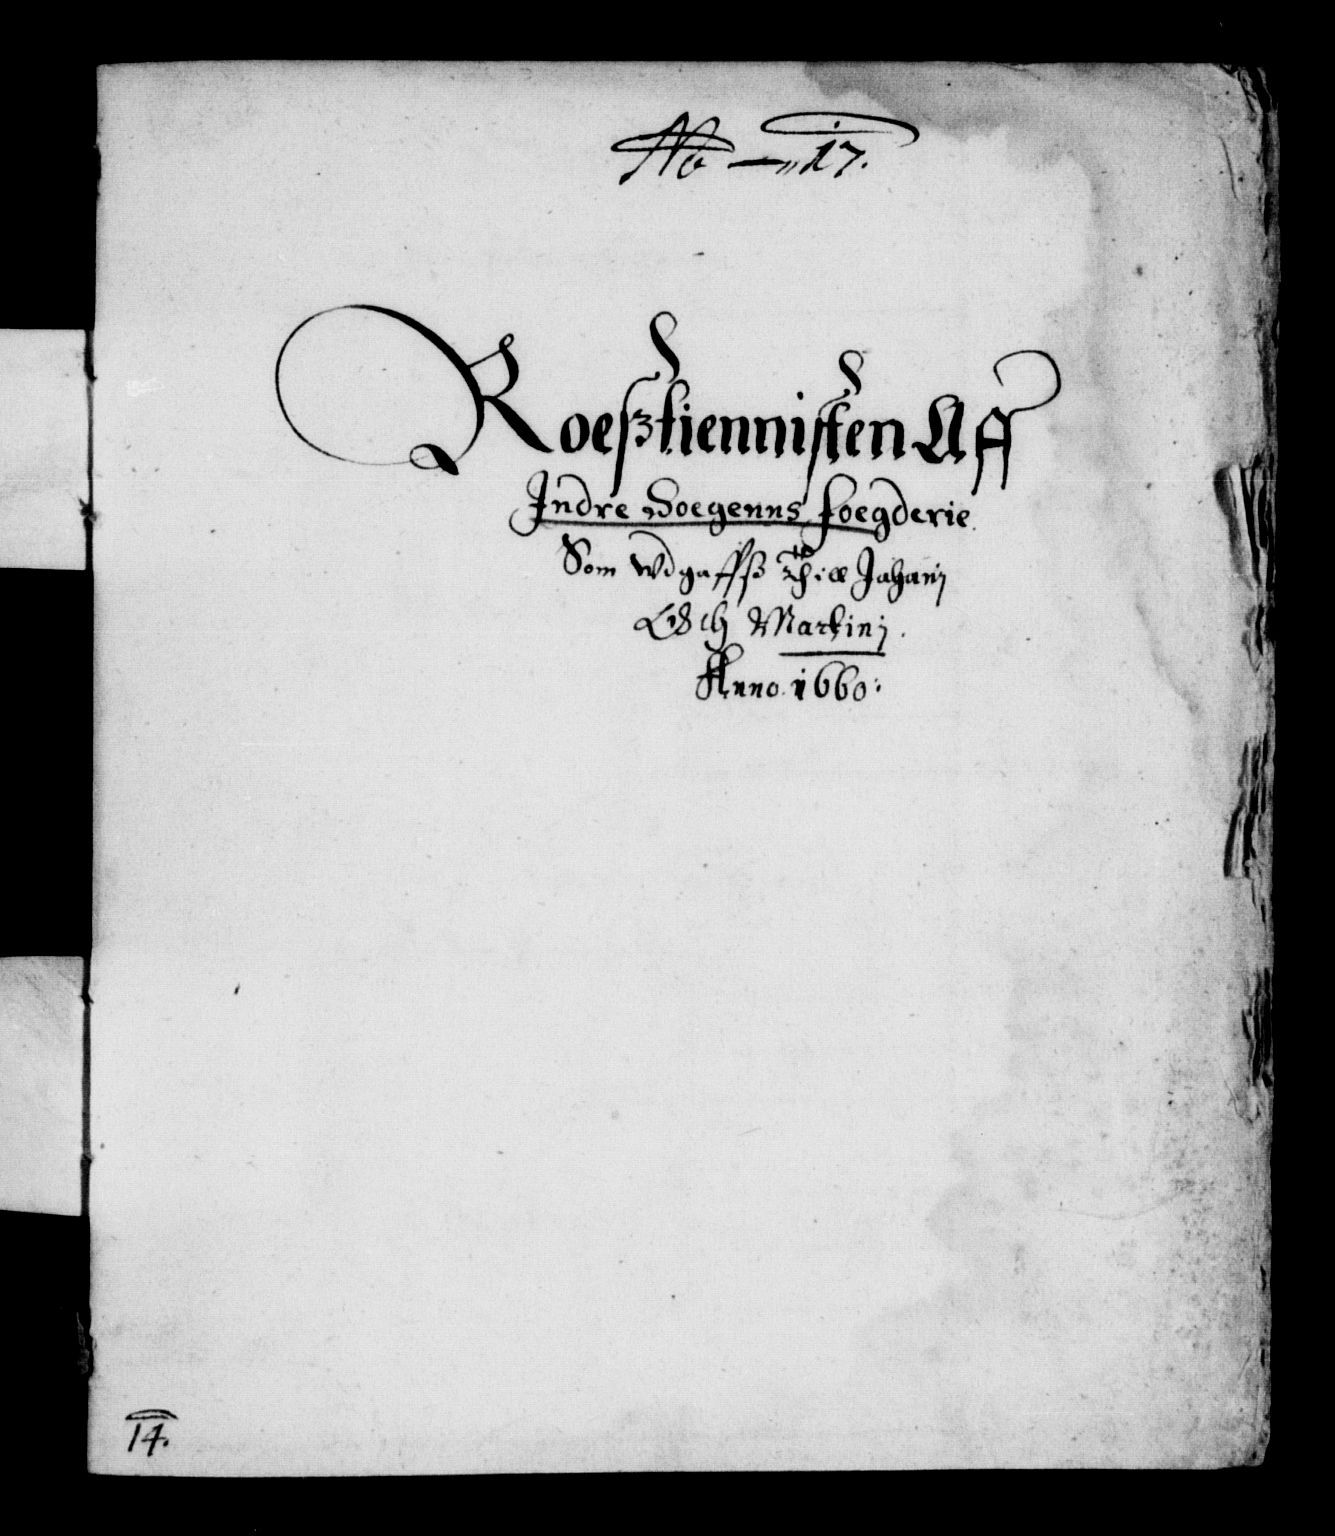 No — 17.
Roesztiennisten Aff
Indre Soegenns foegderie
Som Wdgaffsz thill Johanj
Och Martinj.
Anno. 1660:
14.